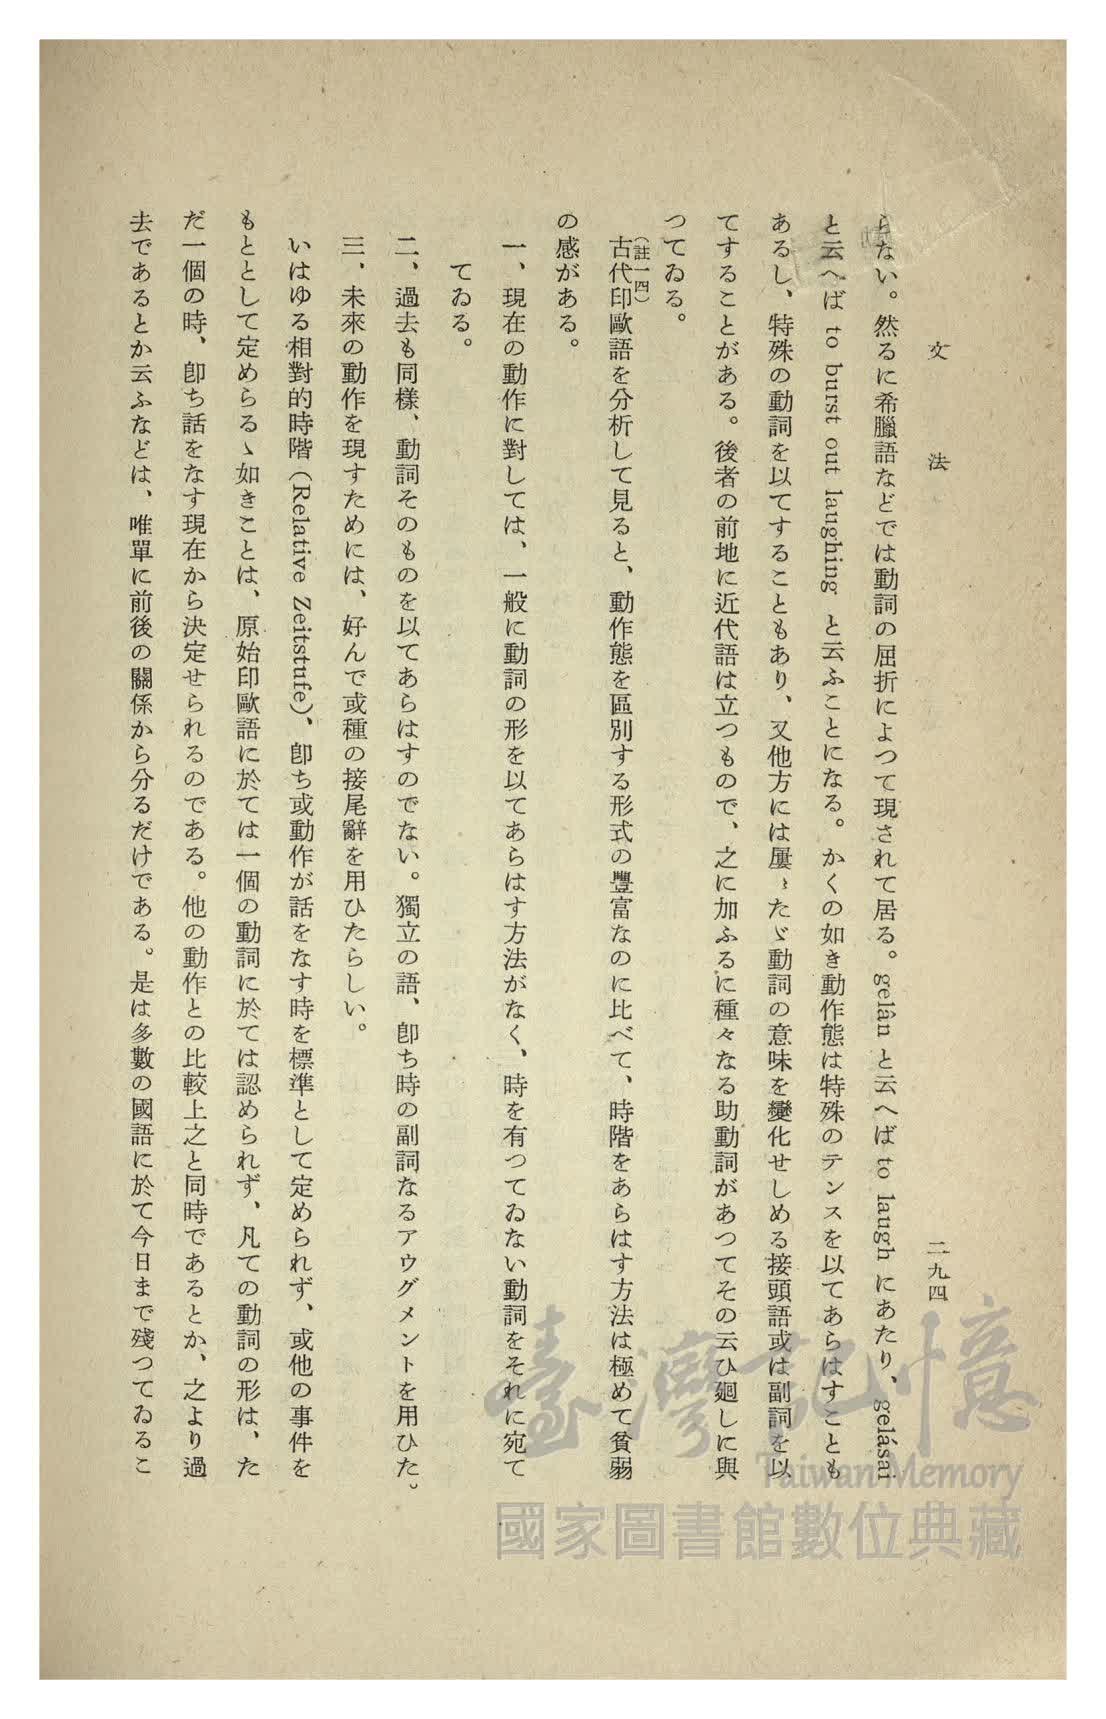 文法
二九四
らない。然るに希臘語などでは動詞の屈折によつて現されて居る。gelân と云へば to laugh にあたり、gelásai
と云へば to burst out laughing と云ふことになる。かくの如き動作態は特殊のテンスを以てあらはすことも
あるし、特殊の動詞を以てすることもあり、又他方には屢〻たゞ動詞の意味を變化せしめる接頭語或は副詞を以
てすることがある。後者の前地に近代語は立つもので、之に加ふるに種々なる助動詞があつてその云ひ廻しに與
つてゐる。
(註一四)
古代印歐語を分析して見ると、動作態を區別する形式の豐富なのに比べて、時階をあらはす方法は極めて貧弱
の感がある。
一、現在の動作に對しては、一般に動詞の形を以てあらはす方法がなく、時を有つてゐない動詞をそれに宛て
てゐる。
二、過去も同樣、動詞そのものを以てあらはすのでない。獨立の語、卽ち時の副詞なるアウグメントを用ひた。
三、未來の動作を現すためには、好んで或種の接尾辭を用ひたらしい。
いはゆる相對的時階(Relative Zeitstufe)、卽ち或動作が話をなす時を標準として定められず、或他の事件を
もととして定めらるゝ如きことは、原始印歐語に於ては一個の動詞に於ては認められず、凡ての動詞の形は、た
だ一個の時、卽ち話をなす現在から決定せられるのである。他の動作との比較上之と同時であるとか、之より過
去であるとか云ふなどは、唯單に前後の關係から分るだけである。是は多數の國語に於て今日まで殘つてゐるこ
臺灣記憶
Taiwan Memory
國家圖書館數位典藏